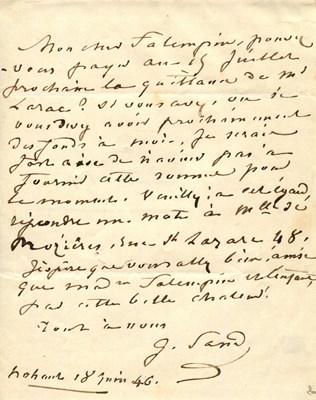 Mon cher Falempin, pouvez
-vous payer au 15 juillet
prochain la quittance de Mr
? Si vous avez, ou si
vous devez avoir prochainement
des fonds à moi, je serais
fort aise de n'avoir pas à
fournir cette somme pour
le moment. Veuillez, à cet égard
répondre un mot à Mlle de
Rozières, rue St Lazare 48.
J'espère que vous allez bien, ainsi
que made Falempin et l'enfant,
par cette belle chaleur.
Tout à vous
G. Sand
Nohant 18 juin 46.